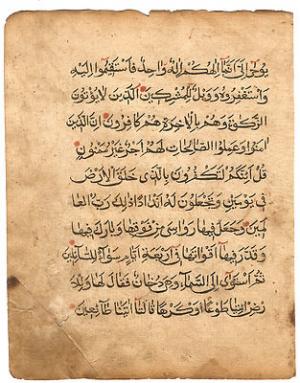 يوحى إلي أنما إلهكم إله واحد فاستقيموا إليه
واستغفروه وويل للمشركين الذين لا يؤتون
الزكوة وهم بالآخرة هم كافرون إن الذين
آمنوا وعملوا الصالحات لهم أجر غير ممنون
قل أئنكم لتكفرون بالذي خلق الأرض
في يومين وتجعلون له أندادا ذلك رب العا
لمين وجعل فيها رواسي من فوقها وبارك فيها
وقدر فيها أقواتها في أربعة أيام سواء للسائلين
ثم استوى إلى السماء وهي دخان فقال لها وللا
رض ائتيا طوعا أو كرها قالتا أتينا طائعين